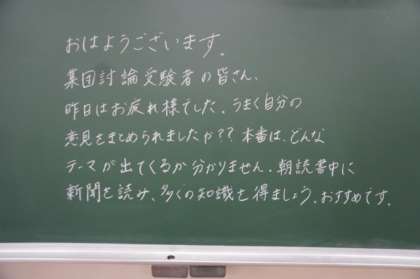 おはようございます。
集団討論受験者の皆さん、
昨日はお疲れ様でした。うまく自分の
意見をまとめられましたか？？本番は、どんな
テーマが出てくるか分かりません。朝読書中に
新聞を読み、多くの知識を得ましょう。おすすめです。